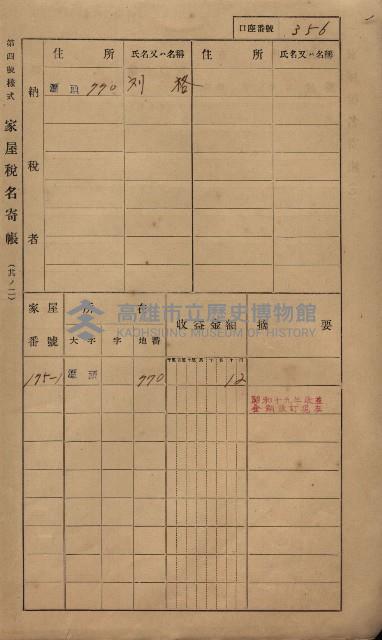 口座番號 356
第四號樣式 家屋稅名寄帳 (其ノ二)
納稅者
住所 氏名又ハ名稱 住所 氏名又ハ名稱
潭頭 770 刘 格
家屋番號 所在 收益金額 摘要
大字 字 地番
175-1 潭頭 770 12
昭和十九年改產
高雄市立歷史博物館
KAOHSIUNG MUSEUM OF HISTORY